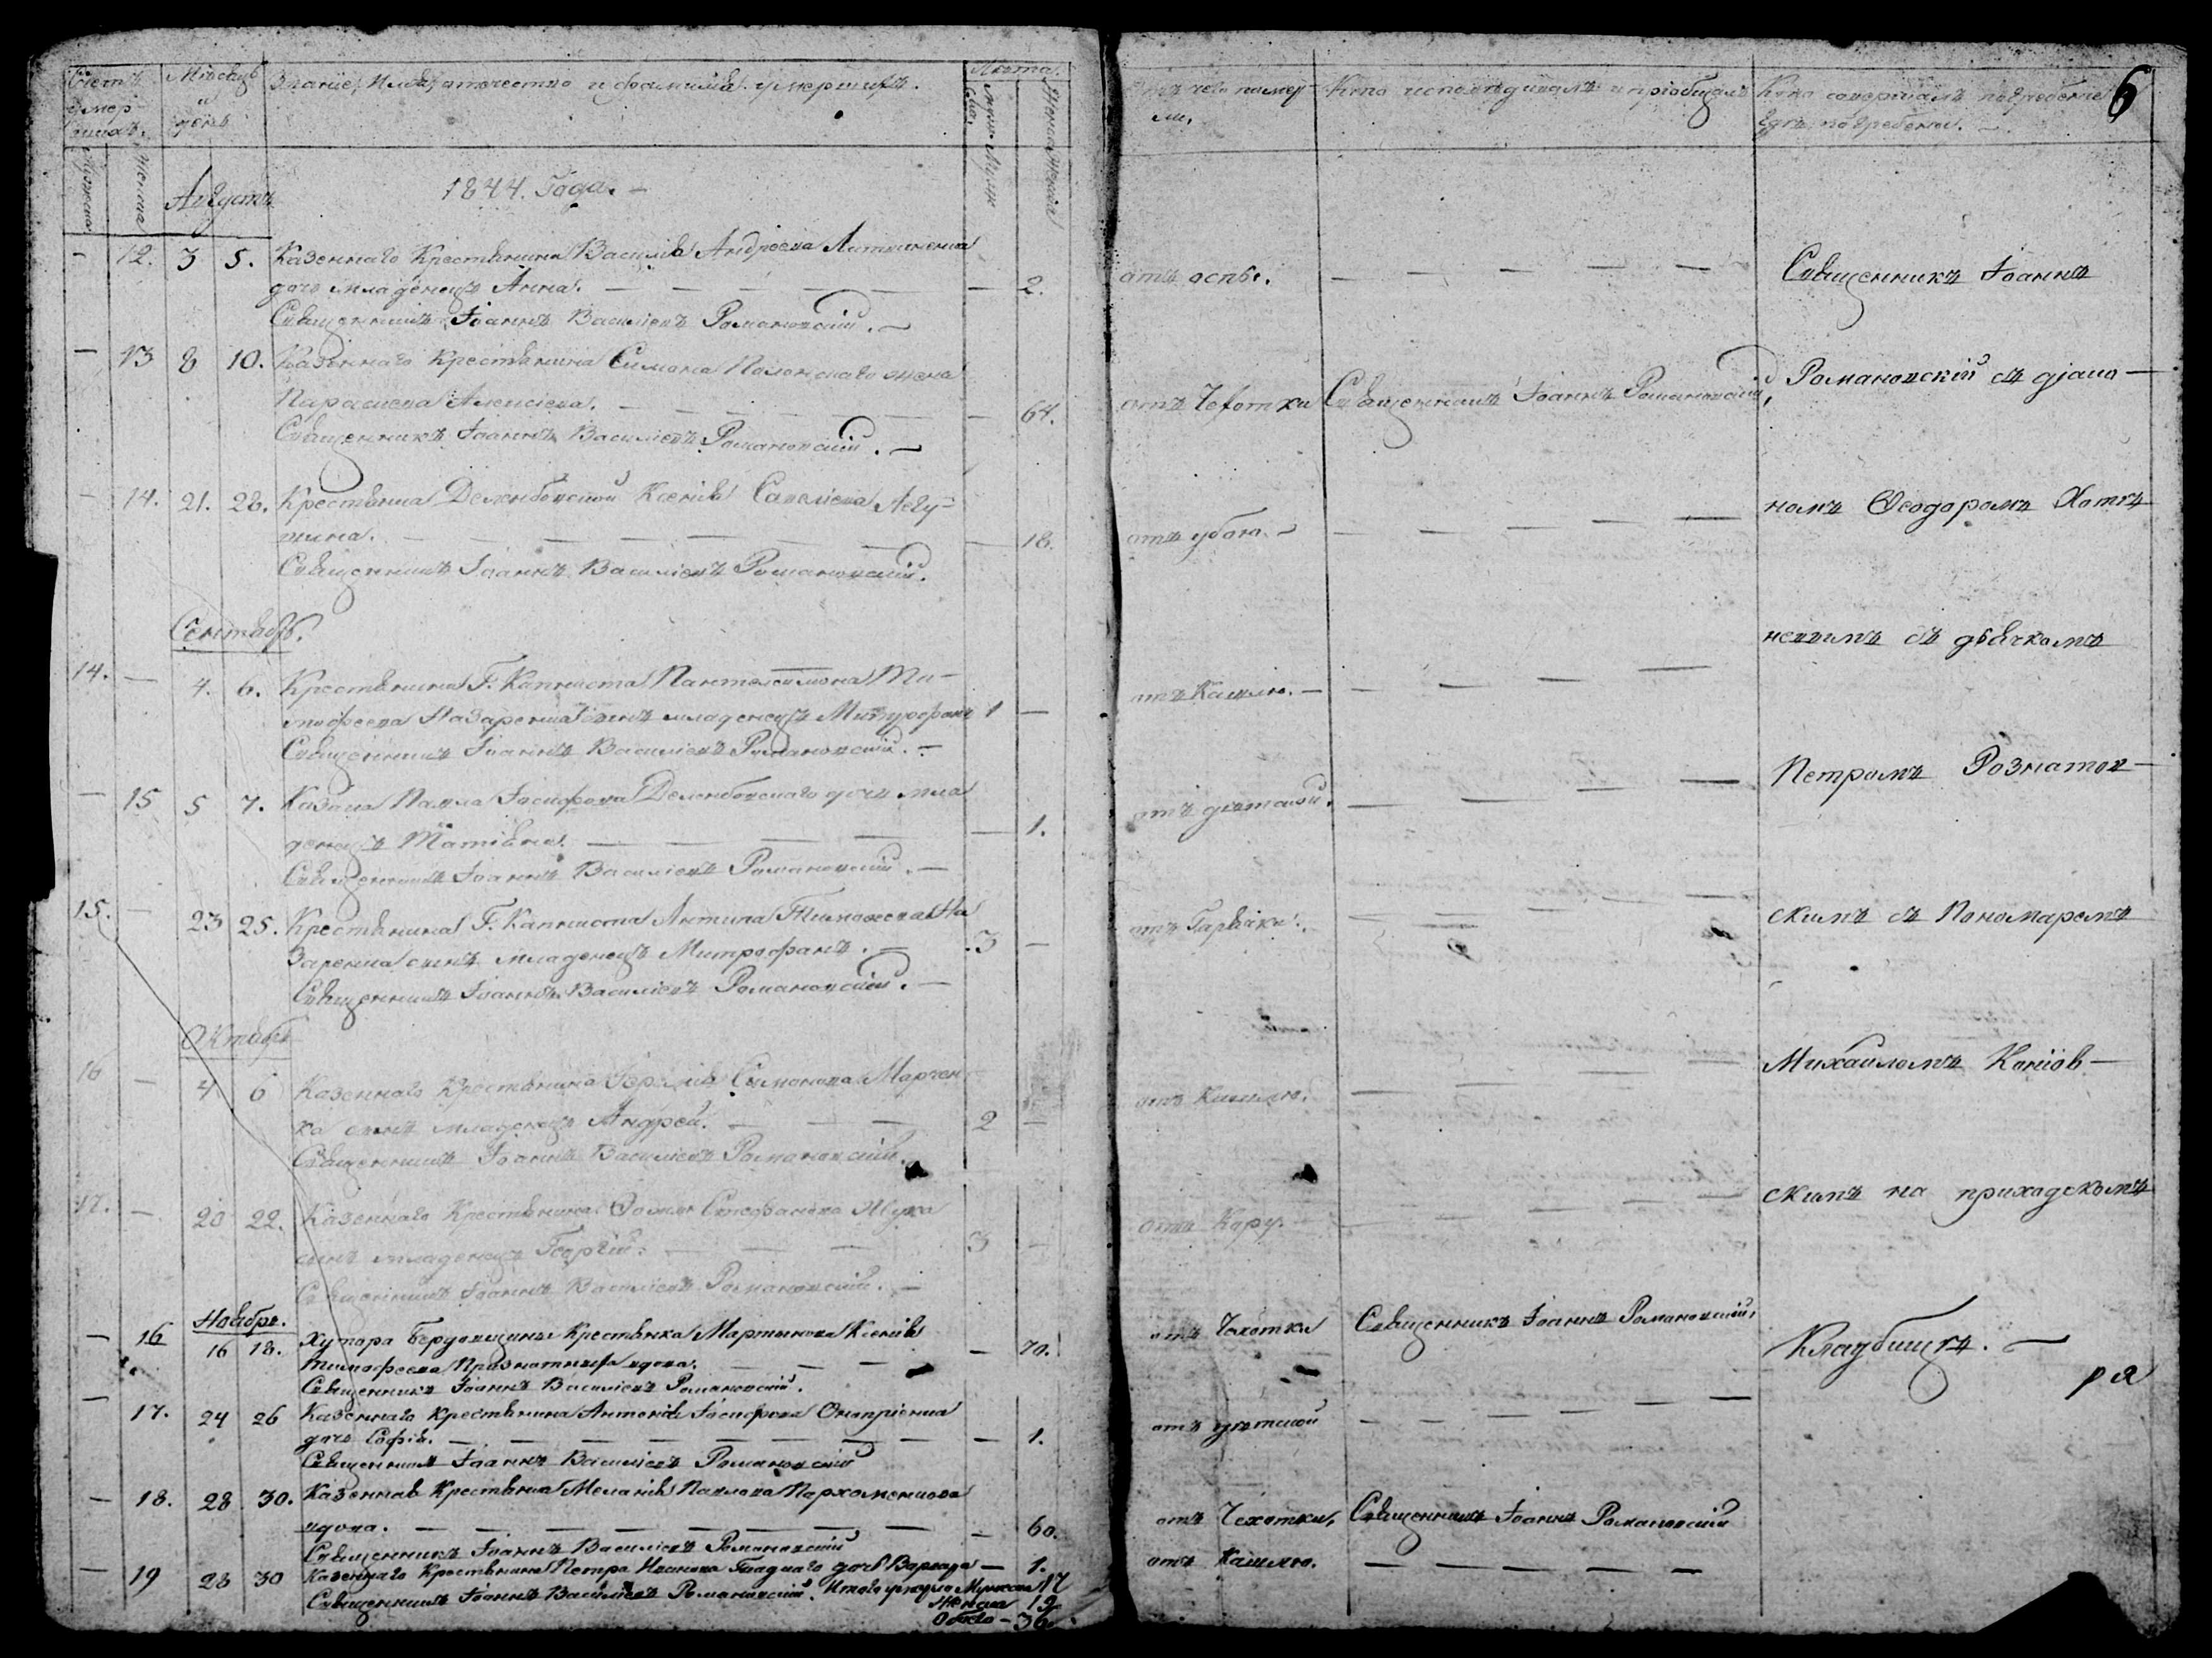 Счетъ умершихъ.
Мѣсяцъ и день
Званіе, Имя, отчество и фамилія умершихъ.
Лѣта.
Мужеска
Женска
Августъ
1844. Года. —
— 12. 3 5. Казеннаго Крестьянина Василія Андреева Литвиненка
дочь младенецъ Анна. — — — — — 2.
Священникъ Іоаннъ Васильевъ Романовскій. —
— 13 8 10. Казеннаго Крестьянина Симона жена
Параскева Алексіева. — — — — 64.
Священникъ Іоаннъ Васильевъ Романовскій. —
— 14. 21. 28. Крестьянка Ксенія Савеліева
— — — — — 18.
Священникъ Іоаннъ Васильевъ Романовскій.
Сентябрь.
14. — 4. 6. Крестьянина Г. Капниста Пантелеимона Ти-
мофеева Назаренка сынъ младенецъ Митрофанъ 1 —
Священникъ Іоаннъ Васильевъ Романовскій. —
— 15 5 7. Козака Павла Іосифова дочь мла
денецъ Татіана. — — — — 1.
Священникъ Іоаннъ Васильевъ Романовскій. —
15. — 23 25. Крестьянина Г. Капниста Антипа На
заренка сынъ младенецъ Митрофанъ. — 3 —
Священникъ Іоаннъ Васильевъ Романовскій. —
Октябрь
16 — 4 6 Казеннаго Крестьянина Симонова Марчен
ка сынъ младенецъ Андрей. — — — 2 —
Священникъ Іоаннъ Васильевъ Романовскій.
17. — 20 22. Казеннаго Крестьянина Стефанова Жука
сынъ младенецъ Георгій. — — — 3 —
Священникъ Іоаннъ Васильевъ Романовскій. —
Ноябрь.
— 16 16 18. Хутора Крестьянка Ксенія
Тимофеева вдова. — — — — 70.
Священникъ Іоаннъ Васильевъ Романовскій.
— 17. 24 26 Казеннаго Крестьянина Антонія Іосифова Оноприенка
дочь Софія. — — — — — — — 1.
Священникъ Іоаннъ Васильевъ Романовскій
— 18. 28 30. Казенная Крестьянка Меланія Павлова Пархоменкова
вдова. — — — — — — — 60.
Священникъ Іоаннъ Васильевъ Романовскій
— 19 28 30 Казеннаго Крестьянина Петра Иванова Гладкаго дочь Варвара — 1.
Священникъ Іоаннъ Васильевъ Романовскій. Итого умерло Мужска 17
Женска 19
Обоего — 36.
Отъ чего померли.
Кто исповѣдывалъ и пріобщалъ
Кто совершалъ погребеніе
гдѣ погребены. —
6
отъ оспы. — — — — —
Священникъ Іоаннъ
отъ Чехотки Священникъ Іоаннъ Романовскій,
Романовскій съ діако—
отъ — — — — —
номъ Ѳеодоромъ Хотѣ
отъ Кашлю. — — — — —
невимъ съ дьячкомъ
отъ дѣтской. — — — —
Петромъ Розматов—
отъ Гарячки. — — — —
скимъ съ Пономаремъ
отъ Кашлю. — — — —
Михаиломъ Копіов—
отъ Кору. — — — —
скимъ на приходскомъ
отъ Чехотки Священникъ Іоаннъ Романовскій,
Кладбищѣ. —
ра
отъ дѣтской — — — — — —
отъ Чехотки, Священникъ Іоаннъ Романовскій
отъ Кашлю. — — — — —